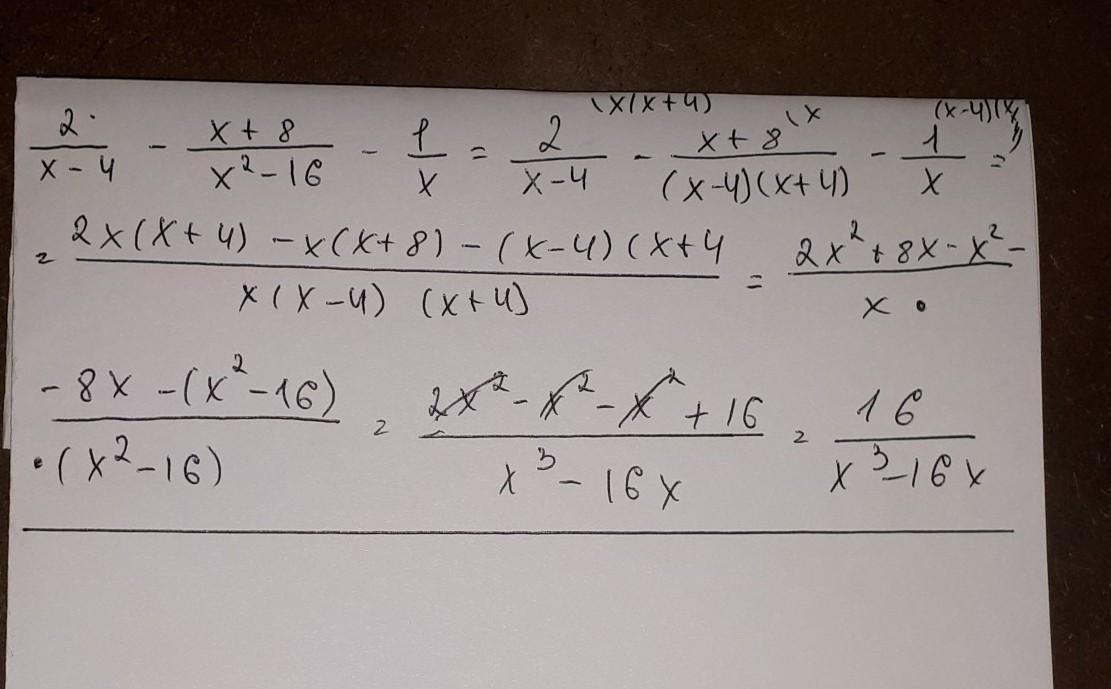 2/(x-4) - (x+8)/(x²-16) - 1/x = 2/(x-4) \(x(x+4) - (x+8)/((x-4)(x+4)) \(x - 1/x (x-4)(x =
= (2x(x+4) - x(x+8) - (x-4)(x+4)/(x(x-4) (x+4)) = (2x²+8x-x²-)/(x •)
(-8x-(x²-16))/(•(x²-16)) = (2x²-x²-x²+16)/(x³-16x) = 16/(x³-16x)